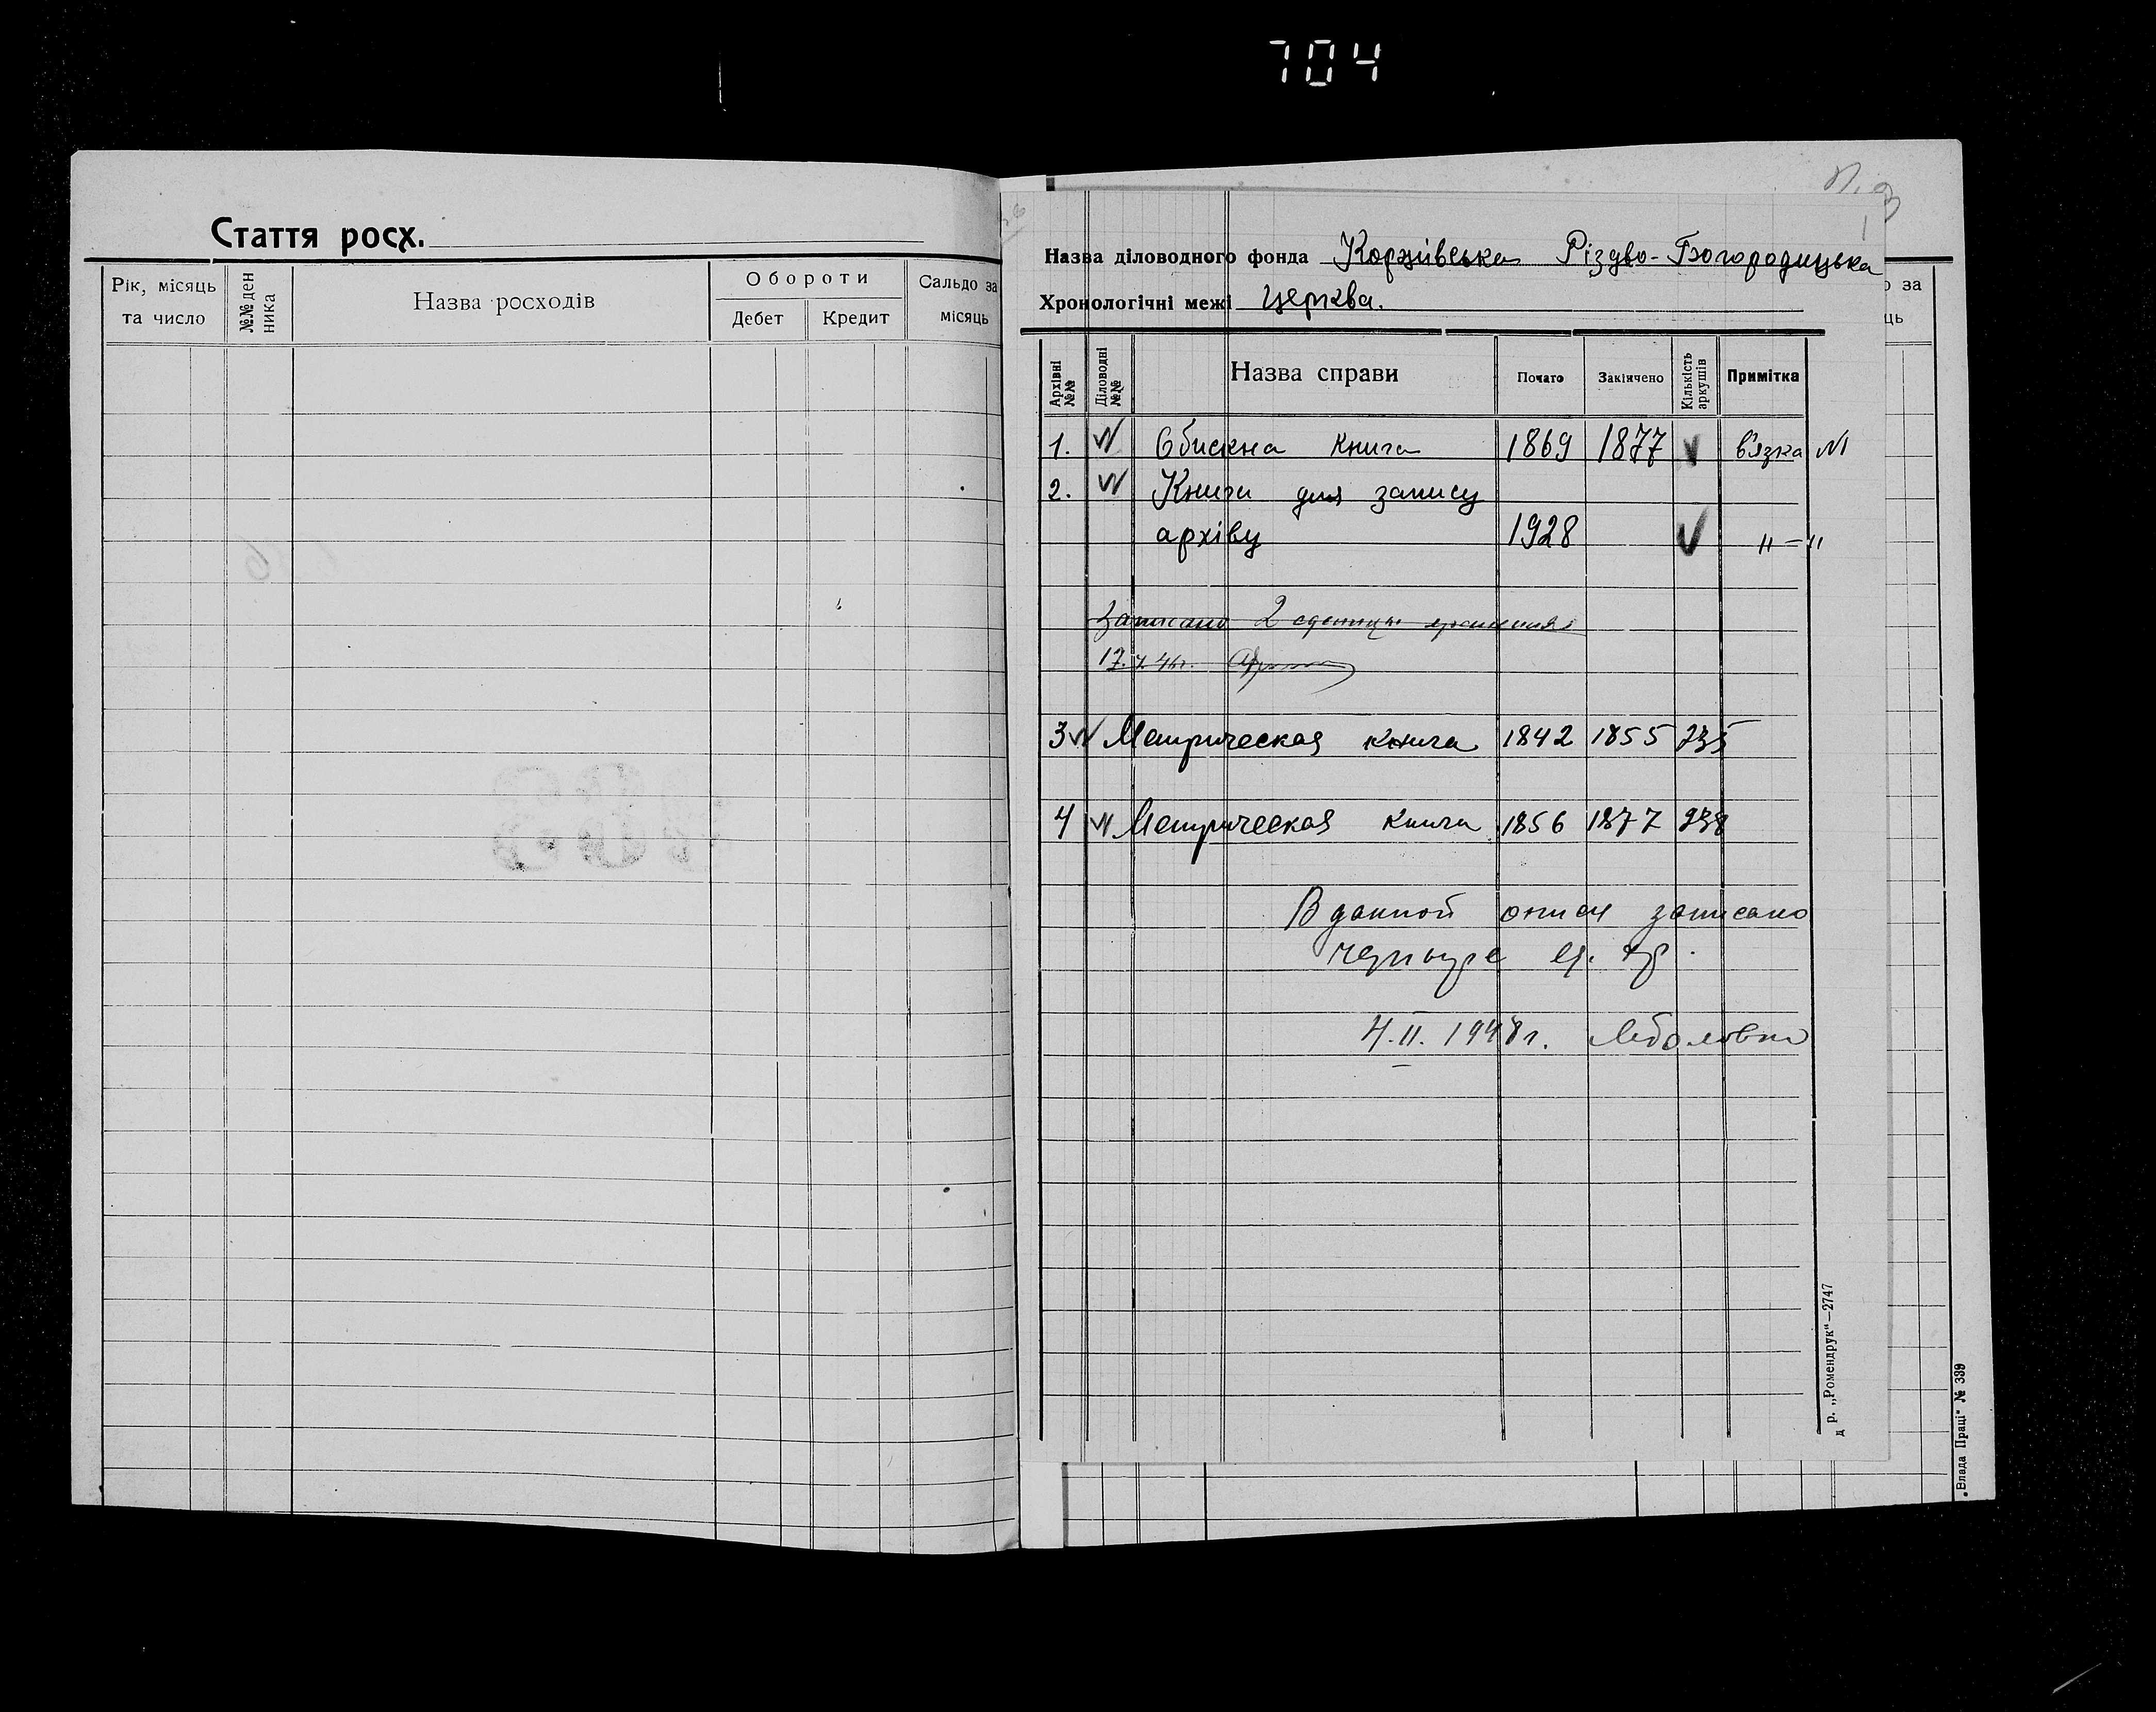 704
Стаття росх.
Рік, місяць та число
№№ ден ника
Назва росходів
Обороти
Дебет
Кредит
Сальдо за місяць
1
Назва діловодного фонда Коржівська Різдво-Богородицька
Хронологічні межі церква.
о за
ць
Архівні №№
Діловодні №№
Назва справи
Почато
Закінчено
Кількість аркушів
Примітка
1. V Обискна книга 1869 1877 V в'язка №1
2. V Книги для запису
архіву 1928 V "–"
Записано 2 единицы хранения
3 V Метрическая книга 1842 1855
4 V Метрическая книга 1856 1877 938
В данной описи записано
четыре ед. хр.
4.II.1948г.
д р. „Ромендрук"—2747
„Влада Праці" № 339